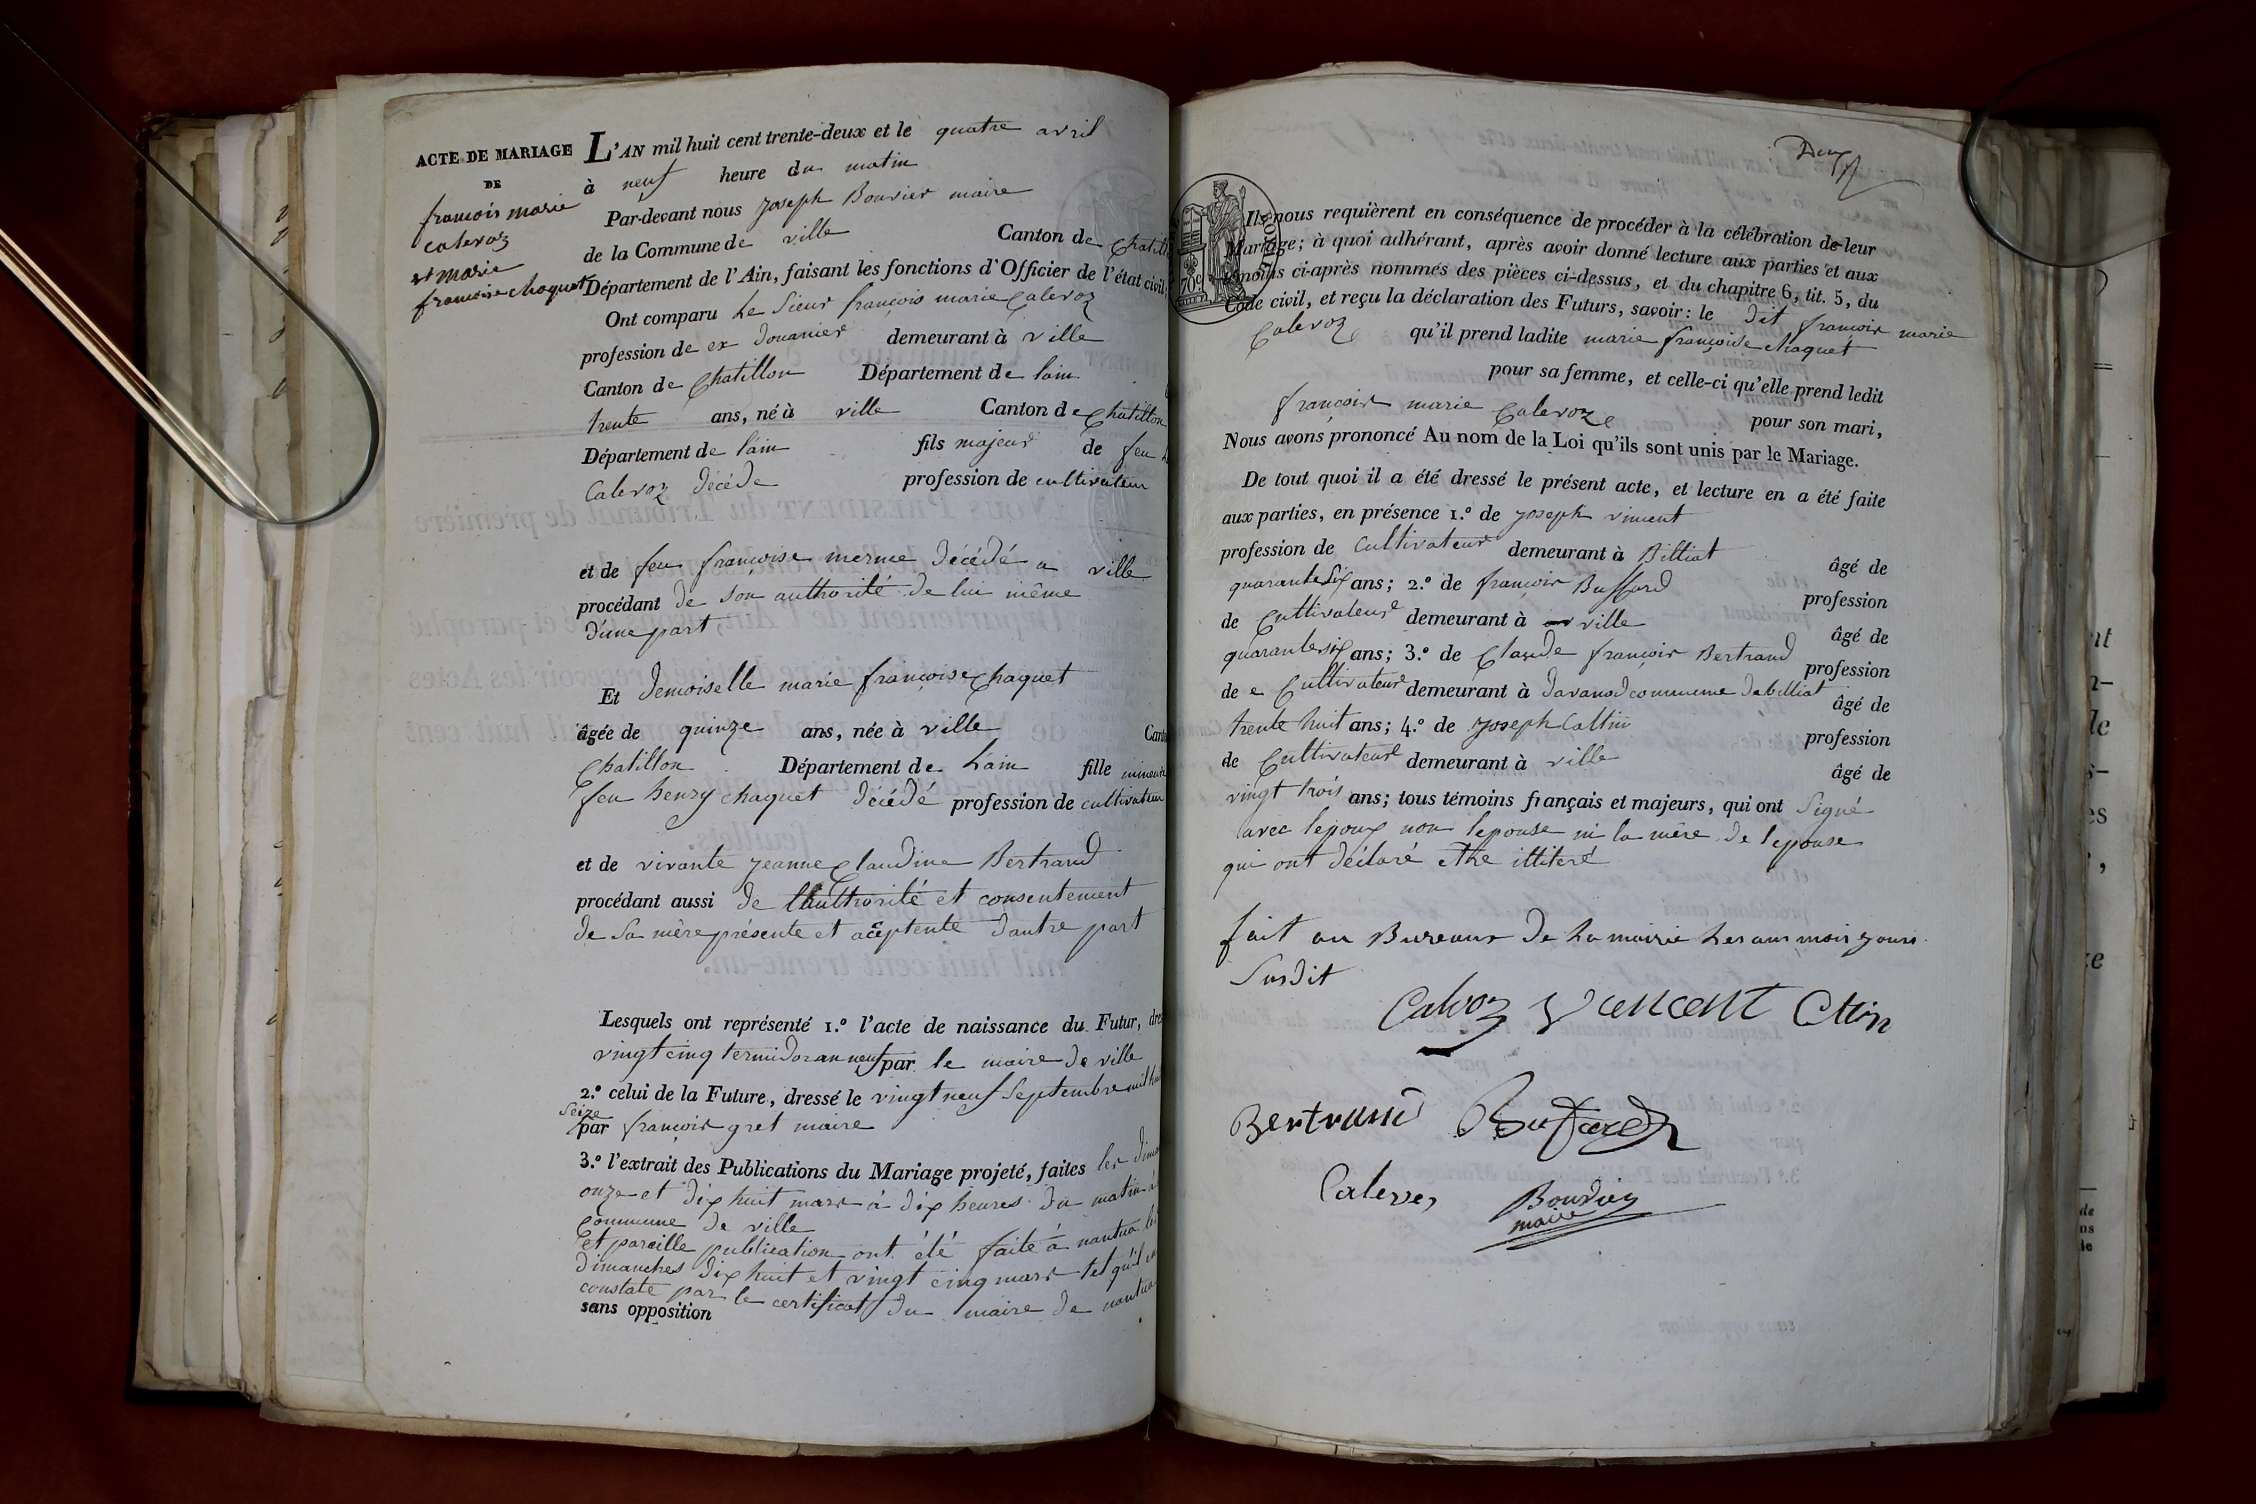 ACTE DE MARIAGE
DE
françois marie
calevoz
et marie
françoise chaquet
L'AN mil huit cent trente-deux et le quatre avril
à neuf heure du matin
Par-devant nous joseph Bouvier maire
de la Commune de ville Canton de
Département de l'Ain, faisant les fonctions d'Officier de l'état civil,
Ont comparu le Sieur françois marie Calevoz
profession de ex douanier demeurant à ville
Canton de Chatillon Département de lain
trente ans, né à ville Canton de Chatillon
Département de lain fils majeur de feu
Calevoz décédé profession de cultivateur
et de feu françoise merme décédé a ville
procédant de son authorité de lui même
d'une part
Et demoiselle marie françoise Chaquet
âgée de quinze ans, née à ville
Chatillon Département de Lain fille
feu henry chaquet décédé profession de cultivateur
et de vivante jeanne Claudine Bertrand
procédant aussi de l'authorité et consentement
de Sa mère présente et aceptente dautre part
Lesquels ont représenté 1.º l'acte de naissance du Futur,
vingt cinq termidor an neuf par le maire de ville
2.º celui de la Future, dressé le vingt neuf Septembre mil
seize
par françois gret maire
3.º l'extrait des Publications du Mariage projeté, faites les
onze et dix huit mars à dix heures du matin à
Commune de ville
et pareille publication ont été faite à nantua
dimanches dix huit et vingt cinq mars tel qu'il
constate par le certificat du maire de nantua
sans opposition
Ils nous requièrent en conséquence de procéder à la célébration de leur
Mariage; à quoi adhérant, après avoir donné lecture aux parties et aux
témoins ci-après nommés des pièces ci-dessus, et du chapitre 6, tit. 5, du
Code civil, et reçu la déclaration des Futurs, savoir: le dit françois marie
Calevoz qu'il prend ladite marie françoise chaquet
pour sa femme, et celle-ci qu'elle prend ledit
françois marie Calevoz pour son mari,
Nous avons prononcé Au nom de la Loi qu'ils sont unis par le Mariage.
De tout quoi il a été dressé le présent acte, et lecture en a été faite
aux parties, en présence 1.º de joseph vincent
profession de Cultivateur demeurant à Billiat âgé de
quarante Six ans; 2.º de françois Buffard profession
de Cultivateur demeurant à ville âgé de
quarante six ans; 3.º de Claude françois Bertrand profession
de Cultivateur demeurant à davanod commune de billiat âgé de
trente huit ans; 4.º de joseph Cattin profession
de Cultivateur demeurant à ville âgé de
vingt trois ans; tous témoins français et majeurs, qui ont Signé
avec lepoux non lepouse ni la mère de lepouse
qui ont déclaré etre illiteré
fait au Bureaux de La mairie Les an mois jours
Susdit
Calvoz Vencent Cttin
Bertrand Buffard
Bouvier
maire
70 c
ROYAL